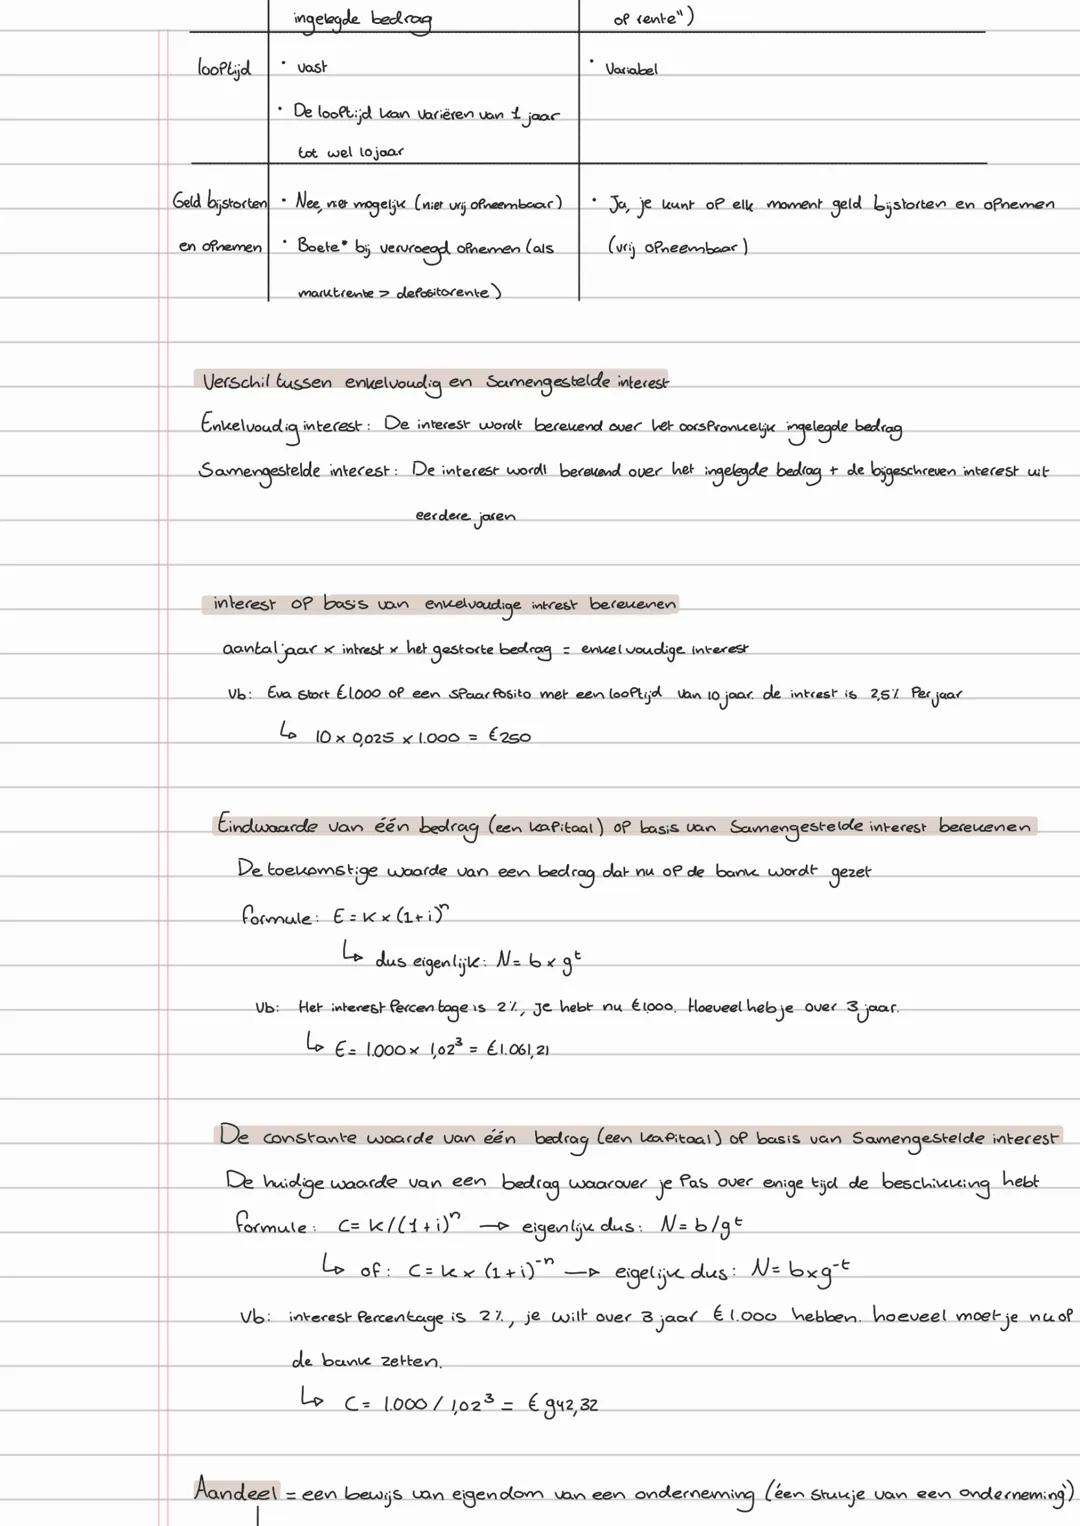 ingelegde bedrag
op rente")
looptijd
• vast
• Variabel
• De looptijd kan variëren van 1 jaar
tot wel 10 jaar
Geld bijstorten
• Nee, niet mogelijk (niet vrij opneembaar)
• Ja, je kunt op elk moment geld bijstorten en opnemen
en opnemen
• Boete* bij vervroegd opnemen (als
(vrij opneembaar)
marktrente > depositorente)
Verschil tussen enkelvoudig en samengestelde interest
Enkelvoudig interest: De interest wordt berekend over het oorspronkelijk ingelegde bedrag
Samengestelde interest: De interest wordt berekend over het ingelegde bedrag + de bijgeschreven interest uit
eerdere jaren
interest op basis van enkelvoudige intrest berekenen
aantal jaar x intrest x het gestorte bedrag = enkelvoudige interest
Vb: Eva stort €1.000 op een spaarposito met een looptijd van 10 jaar. de intrest is 2,5% per jaar
↳ 10 x 0,025 x 1.000 = €250
Eindwaarde van één bedrag (een kapitaal) op basis van samengestelde interest berekenen
De toekomstige waarde van een bedrag dat nu op de bank wordt gezet
formule: E = K x (1+i)ⁿ
↳ dus eigenlijk: N = b x gᵗ
Vb: Het interest percentage is 2%, je hebt nu €1.000. Hoeveel heb je over 3 jaar.
↳ E = 1.000 x 1,02³ = €1.061,21
De constante waarde van één bedrag (een kapitaal) op basis van samengestelde interest
De huidige waarde van een bedrag waarover je pas over enige tijd de beschikking hebt
formule: C = K/(1+i)ⁿ → eigenlijk dus: N = b/gᵗ
↳ of: C = K x (1+i)⁻ⁿ → eigelijk dus: N = b x g⁻ᵗ
Vb: interest percentage is 2%, je wilt over 3 jaar €1.000 hebben. hoeveel moet je nu op
de bank zetten.
↳ C = 1.000 / 1,02³ = €942,32
Aandeel = een bewijs van eigendom van een onderneming (één stukje van een onderneming)